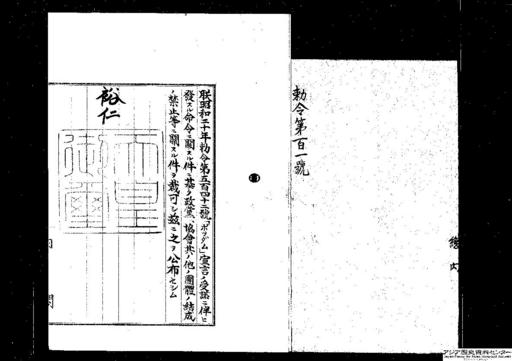 勅令第百一號
朕昭和二十年勅令第五百四十二號「ポツダム」宣言ノ受諾ニ伴ヒ
發スル命令ニ關スル件ニ基ク政黨、協會其ノ他ノ團體ノ結成
ノ禁止等ニ關スル件ヲ裁可シ茲ニ之ヲ公布セシム
裕仁
天皇
御璽
閣
アジア歴史資料センター